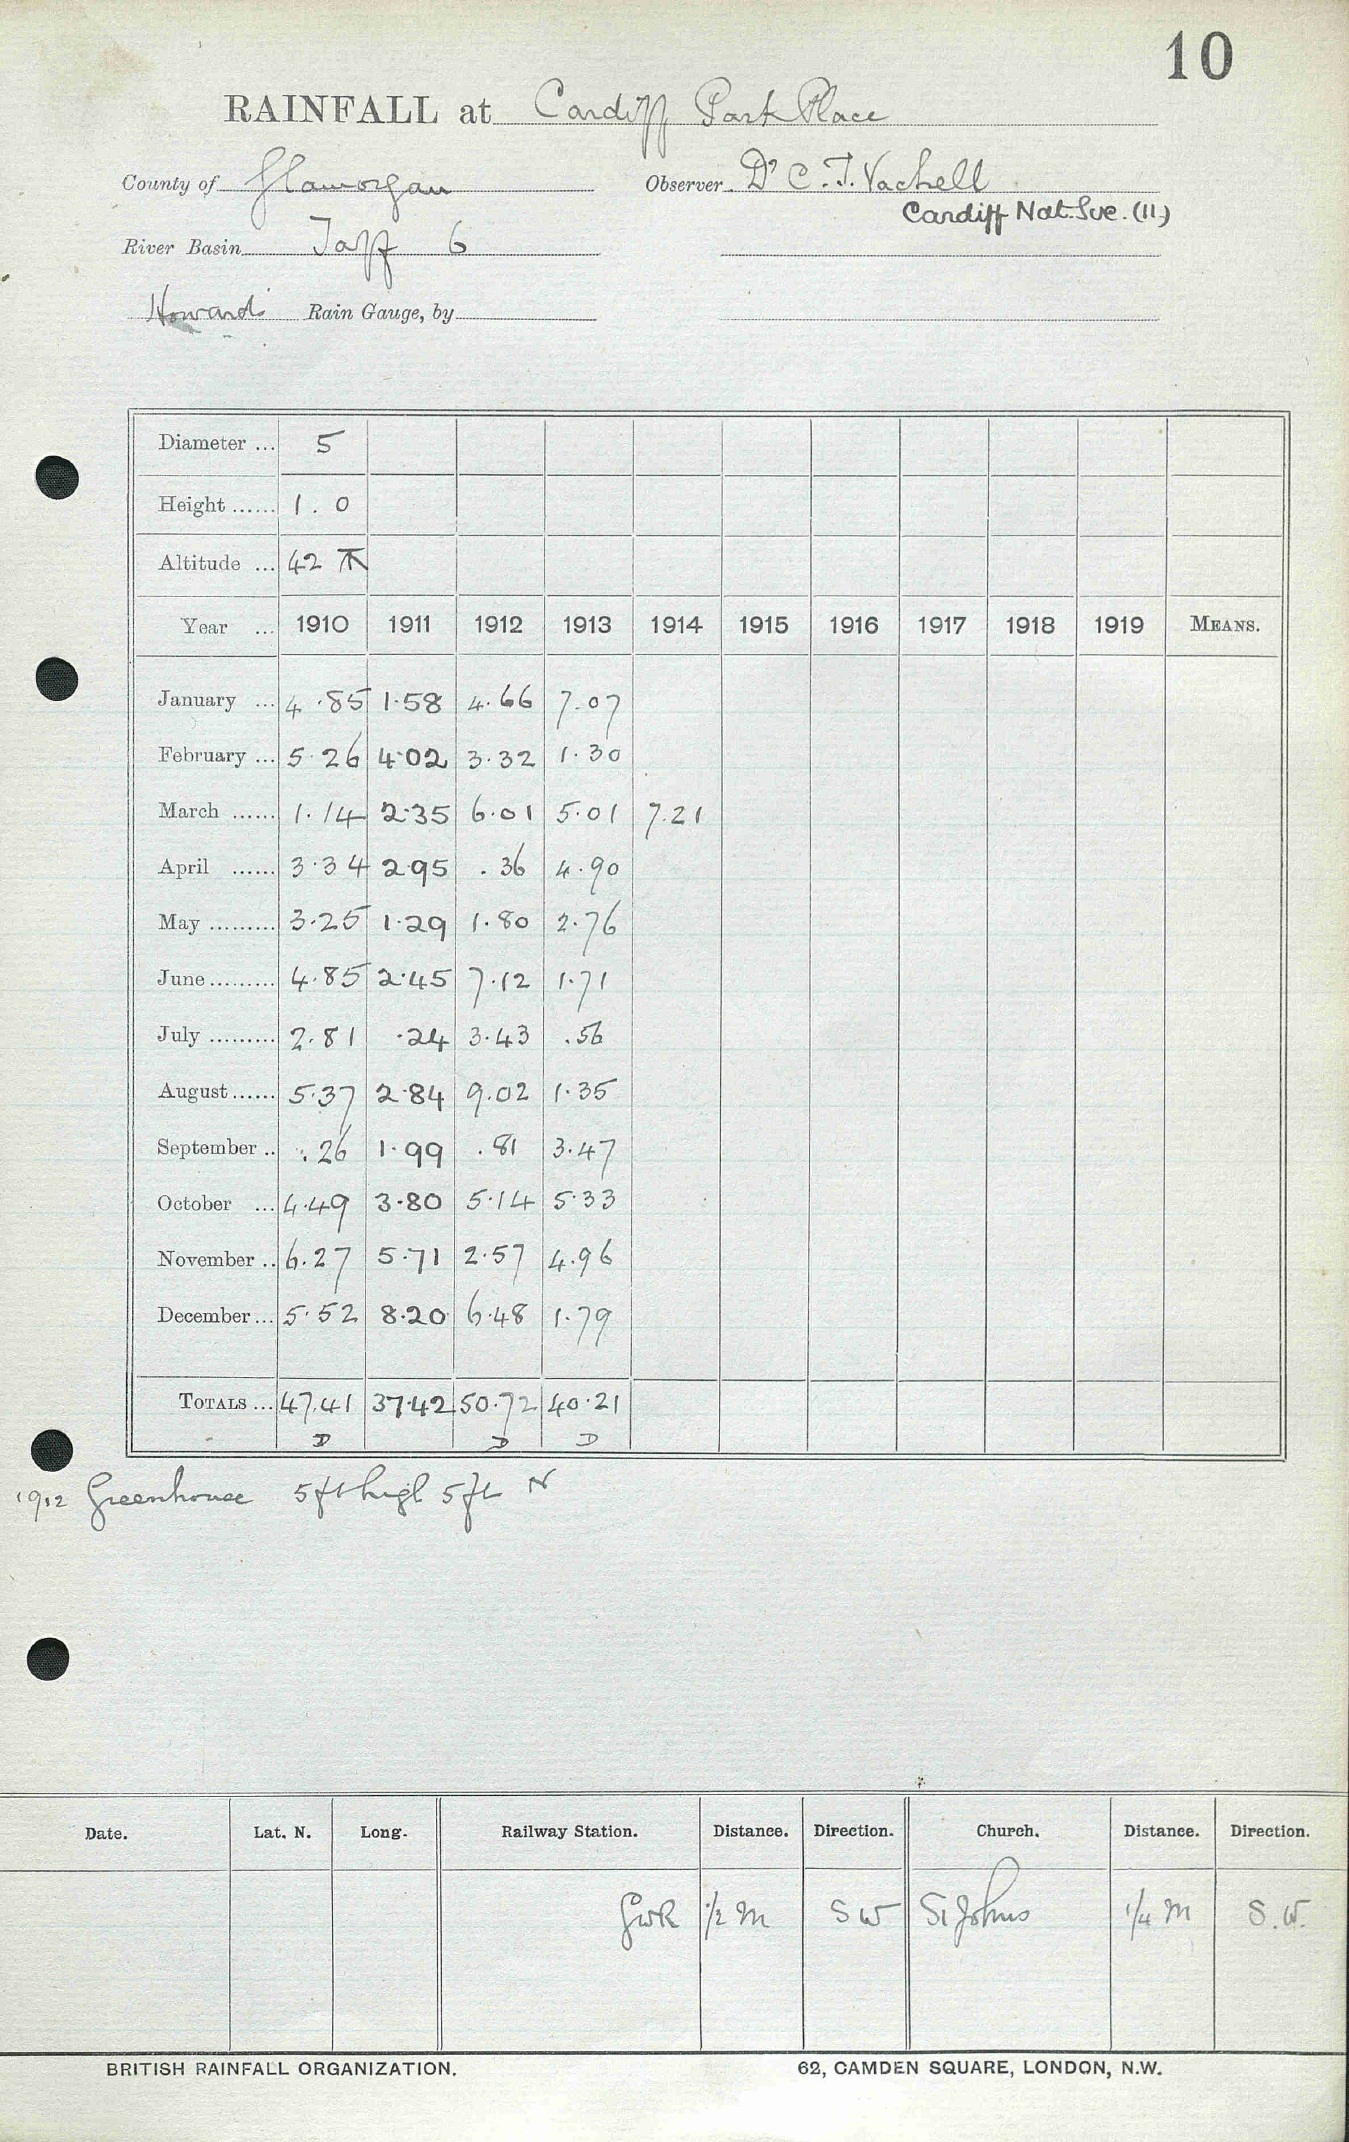 10
RAINFALL at Cardiff Park Place
County of Glamorgan Observer Dr C. T. Vachell
Cardiff Nat. Soc. (11)
River Basin Taff 6
Howard's Rain Gauge, by
Diameter ... 5
Height ...... 1.0
Altitude ... 42
Year ... 1910 1911 1912 1913 1914 1915 1916 1917 1918 1919 MEANS.
January ... 4.85 1.58 4.66 7.07
February ... 5.26 4.02 3.32 1.30
March ...... 1.14 2.35 6.01 5.01 7.21
April ...... 3.34 2.95 .36 4.90
May ......... 3.25 1.29 1.80 2.76
June ......... 4.85 2.45 7.12 1.71
July ......... 2.81 .24 3.43 .56
August ...... 5.37 2.84 9.02 1.35
September .. .26 1.99 .81 3.47
October ... 4.49 3.80 5.14 5.33
November .. 6.27 5.71 2.57 4.96
December ... 5.52 8.20 6.48 1.79
TOTALS ... 47.41 37.42 50.72 40.21
D D D
1912 Greenhouse 5 ft high 5 ft N
Date. Lat. N. Long. Railway Station. Distance. Direction. Church. Distance. Direction.
GWR 1/2 M SW St Johns 1/4 M S.W.
BRITISH RAINFALL ORGANIZATION. 62, CAMDEN SQUARE, LONDON, N.W.